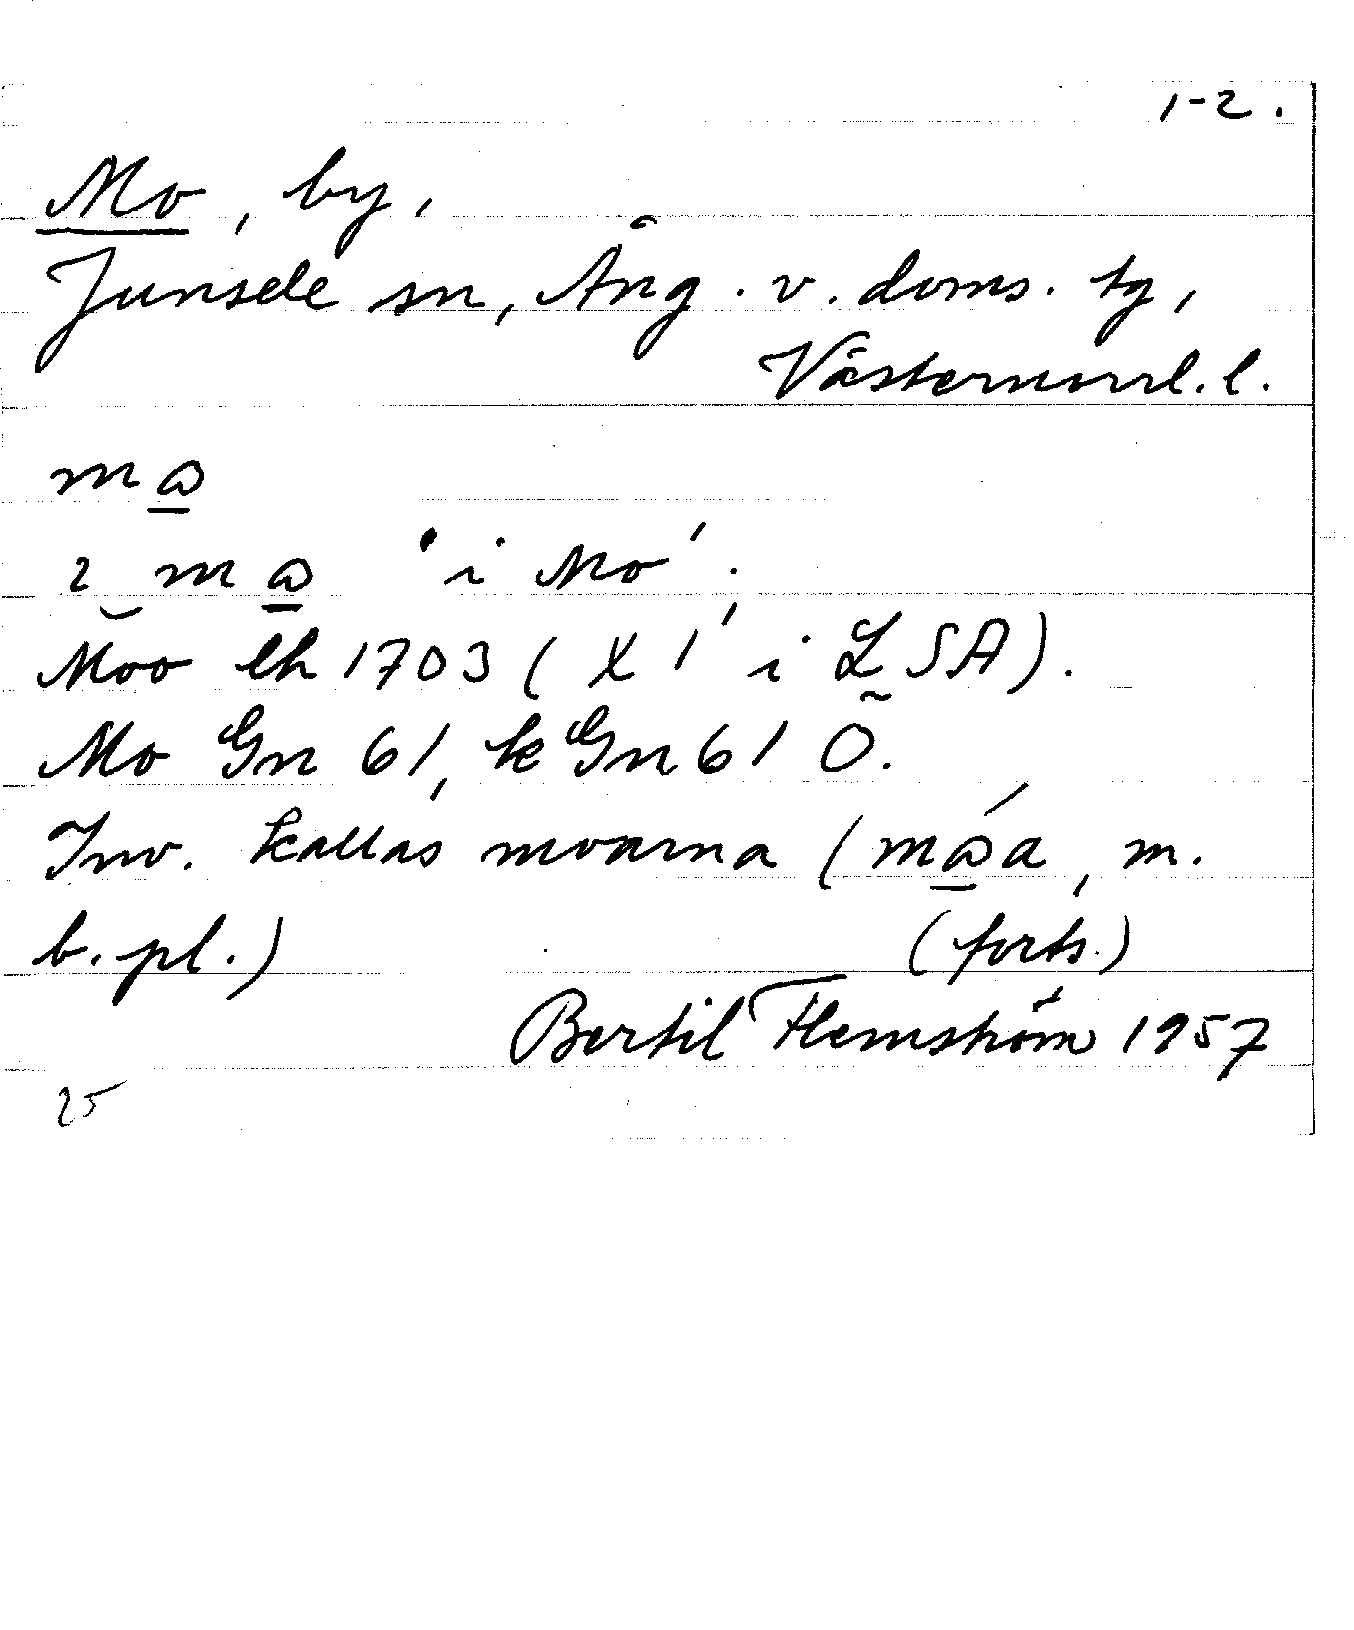 1-2.
Mo, by,
Junsele sn, Ång. v. doms. tg,
Västernorrl. l.
mɷ
ı mɷ 'i Mo',
Moo lh 1703 (X 1' i LSA).
Mo Gn 61, kGn 61 Ö.
Inv. kallas moarna (mɷ́a, m.
b. pl.) (forts.)
Bertil Flemström 1957
25